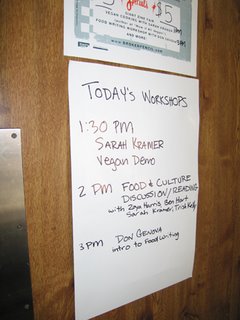 $5
VEGAN COOKING WITH SARAH KRAMER
FOOD WRITING WORKSHOP WITH DON GENOVA
WWW.BROKENPENCIL.COM
TODAY'S WORKSHOPS
1:30 PM
SARAH KRAMER
Vegan Demo
2 PM FOOD & CULTURE
DISCUSSION/READING
with Zoya Harris, Ben Hart
Sarah Kramer, Trish Kelly
3 PM DON GENOVA
intro to Food Writing